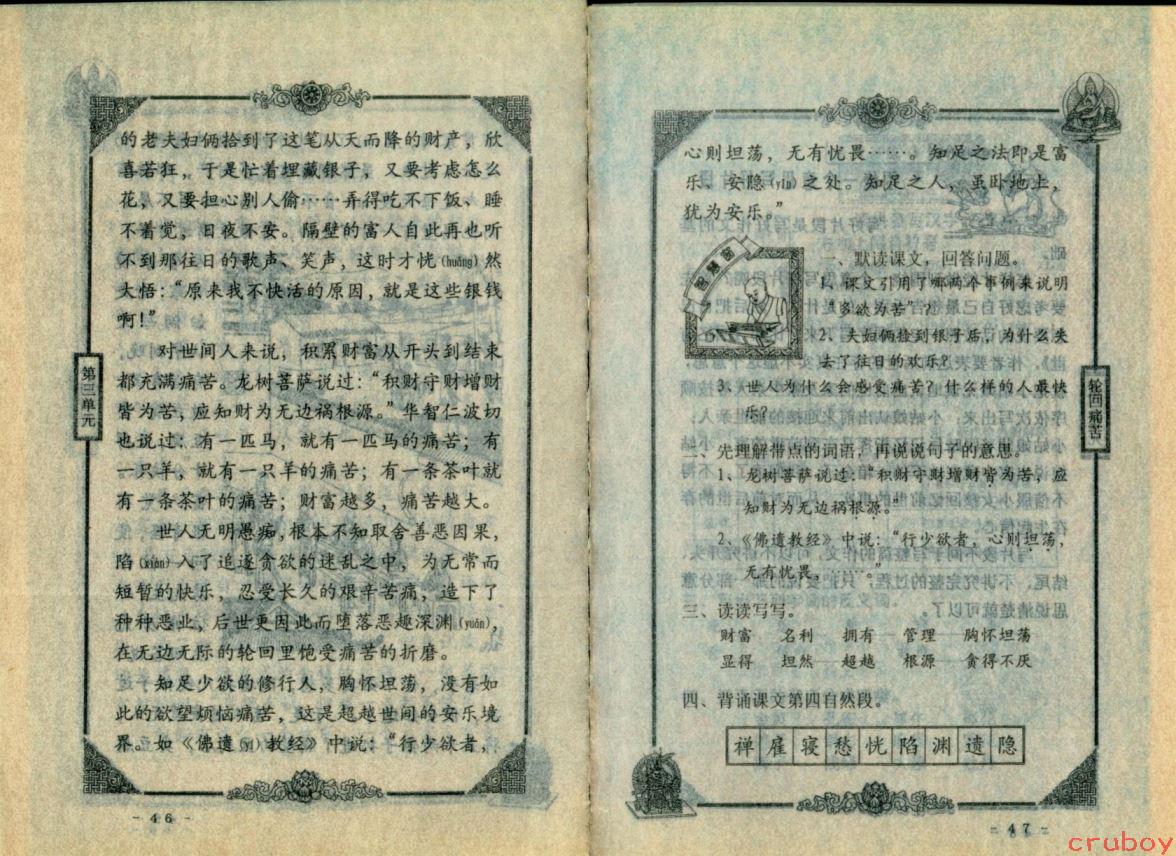 的老夫妇俩拾到了这笔从天而降的财产，欣
喜若狂，于是忙着埋藏银子，又要考虑怎么
花，又要担心别人偷……弄得吃不下饭、睡
不着觉，日夜不安。隔壁的富人自此再也听
不到那往日的歌声、笑声，这时才恍(huǎng)然
大悟：“原来我不快活的原因，就是这些银钱
啊！”
对世间人来说，积累财富从开头到结束
都充满痛苦。龙树菩萨说过：“积财守财增财
皆为苦，应知财为无边祸根源。”华智仁波切
也说过：有一匹马，就有一匹马的痛苦；有
一只羊，就有一只羊的痛苦；有一条茶叶就
有一条茶叶的痛苦；财富越多，痛苦越大。
世人无明愚痴，根本不知取舍善恶因果，
陷(xiàn)入了追逐贪欲的迷乱之中，为无常而
短暂的快乐，忍受长久的艰辛苦痛，造下了
种种恶业，后世更因此而堕落恶趣深渊(yuān)，
在无边无际的轮回里饱受痛苦的折磨。
知足少欲的修行人，胸怀坦荡，没有如
此的欲望烦恼痛苦，这是超越世间的安乐境
界。如《佛遗(yí)教经》中说：“行少欲者，
第三单元
- 46 -
心则坦荡，无有忧畏……。知足之法即是富
乐、安隐(yǐn)之处。知足之人，虽卧地上，
犹为安乐。”
智慧窗
一、默读课文，回答问题。
1、课文引用了哪两个事例来说明
“多欲为苦”？
2、夫妇俩捡到银子后，为什么失
去了往日的欢乐？
3、世人为什么会感受痛苦？什么样的人最快
乐？
二、先理解带点的词语，再说说句子的意思。
1、龙树菩萨说过：“积财守财增财皆为苦，应
知财为无边祸根源。”
2、《佛遗教经》中说：“行少欲者，心则坦荡，
无有忧畏，……。”
三、读读写写。
财富 名利 拥有 管理 胸怀坦荡
显得 坦然 超越 根源 贪得不厌
四、背诵课文第四自然段。
禅雇寝愁恍陷渊遗隐
轮回痛苦
- 47 -
cruboy